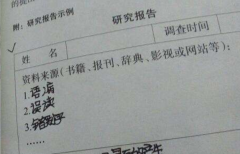 附：研究报告示例
研究报告
姓名 调查时间
资料来源（书籍、报刊、辞典、影视或网站等）：
1.语病
2.误读
3.错别字